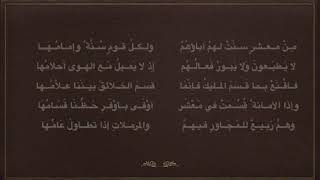 مِنْ مَعشرٍ سنَّتْ لهمْ آباؤهُمْ ولكلِّ قومٍ سُنَّةٌ وإمامُهَا
لا يَطبَعونَ وَلا يَبورُ فَعالُهُم إذ لا يَميلُ مَعَ الهوَى أحلامُهَا
فاقنَعْ بما قَسَمَ المَليكُ فإنّما قسمَ الخلائقَ بينَنا علاَّمُها
وإذا الأمانةُ قُسِّمَتْ في مَعْشَرٍ أوْفَى بأوْفَرِ حَظِّنَا قَسّامُهَا
وهُمُ رَبيعٌ للمُجَاورِ فيهمُ والمرملاتِ إذا تطاولَ عامُها